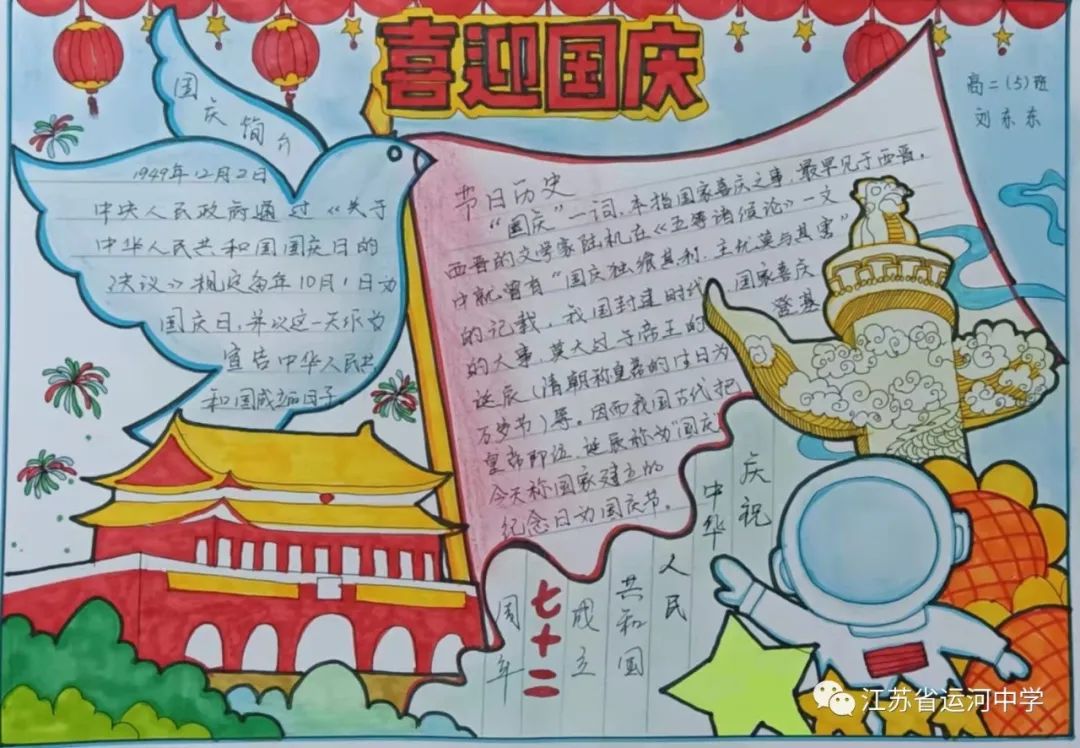 喜迎国庆
高二(5)班
刘东东
国庆简介
1949年12月2日
中央人民政府通过《关于
中华人民共和国国庆日的
决议》规定每年10月1日为
国庆日,并以这一天作为
宣告中华人民共
和国成立的日子
节日历史
“国庆”一词,本指国家喜庆之事,最早见于西晋,
西晋的文学家陆机在《五等诸侯论》一文
中就曾有“国庆独飨其利,主忧莫与其害”
的记载,我国封建时代、国家喜庆
的大事,莫大过于帝王的登基
诞辰(清朝称皇帝的生日为
万岁节)等。因而我国古代把
皇帝即位、诞辰称为“国庆
今天称国家建立的
纪念日为国庆节。
庆祝
中华
人民
共和国
成立
七十二
周年
江苏省运河中学